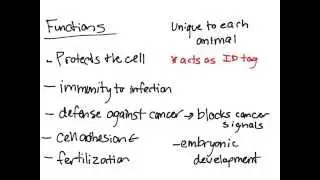 Functions
- Protects the cell
- immunity to infection
- defense against cancer → blocks cancer signals
- cell adhesion ←
- fertilization
Unique to each animal
* acts as ID tag
- embryonic development